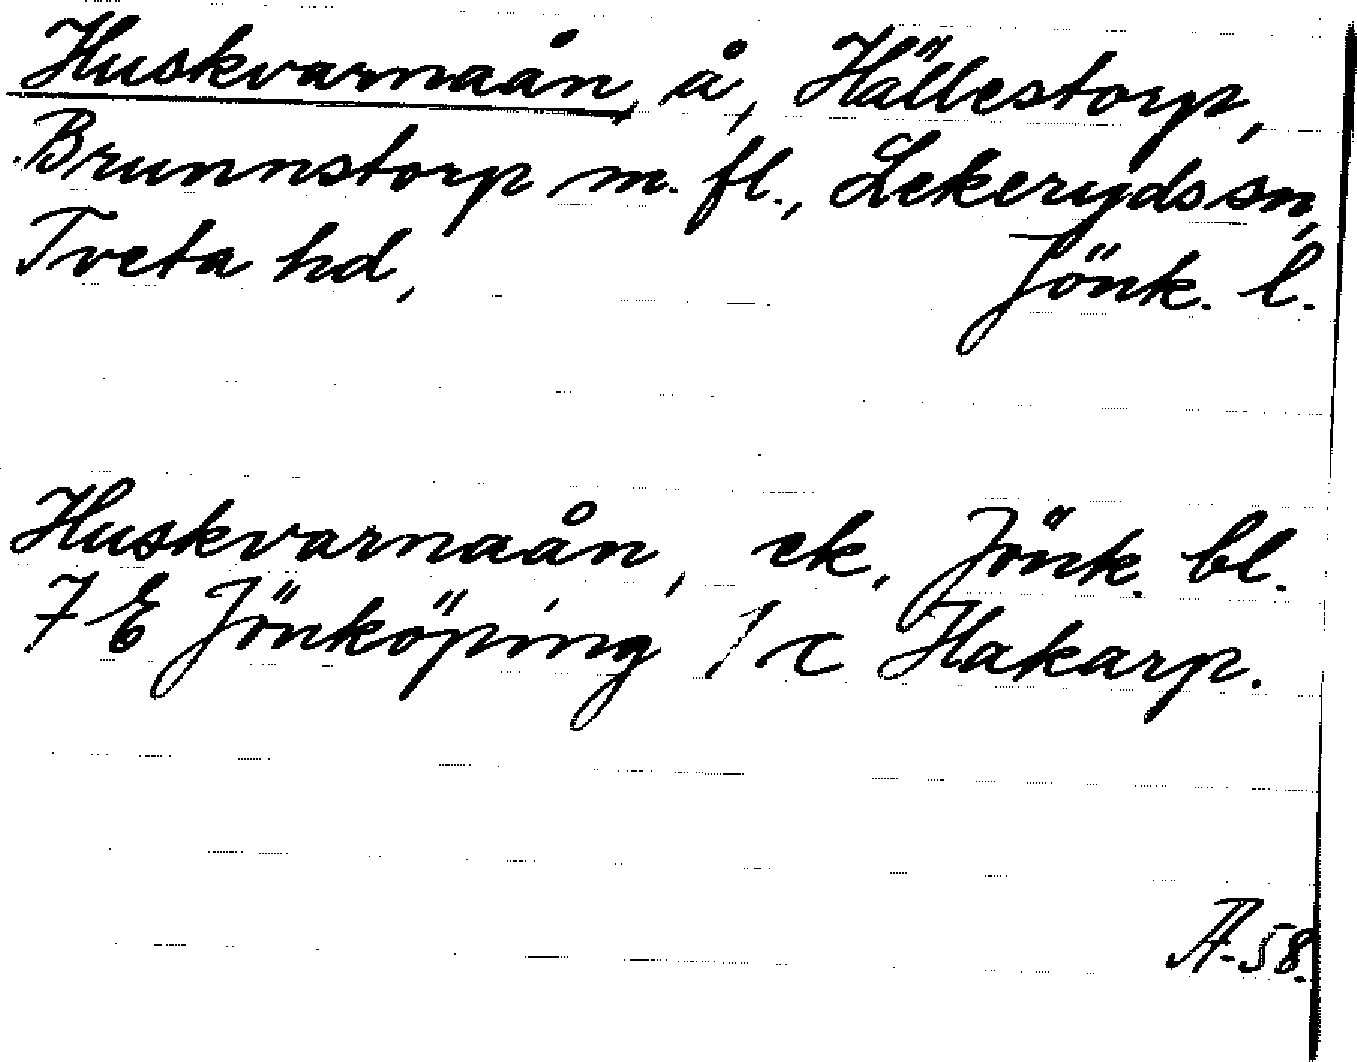 Huskvarnaån, å, Hällestorp,
Brunnstorp m. fl., Lekeryds sn,
Tveta hd, Jönk. l.
Huskvarnaån, ek. Jönk. bl.
7 E Jönköping 1 c Hakarp.
Å-58.